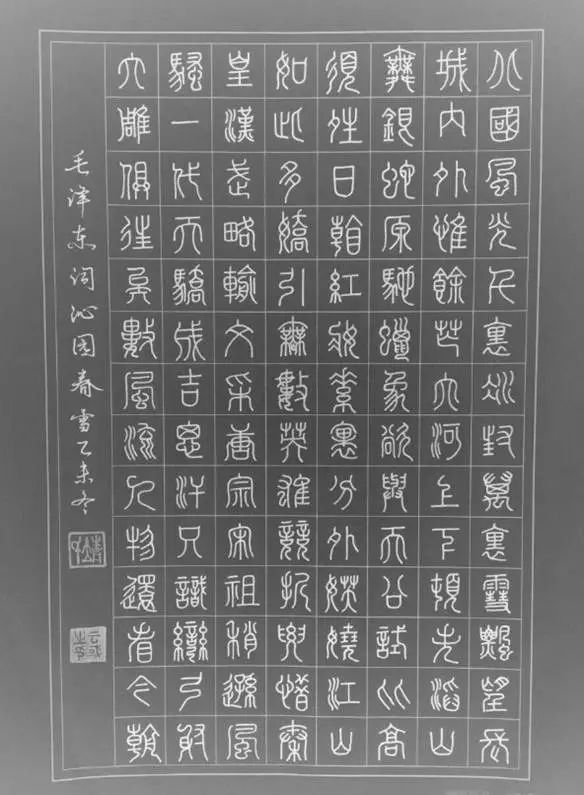 北國風光千裏冰封萬裏雪飄望長
城內外惟餘莽大河上下頓失滔山
舞銀蛇原馳蠟象欲與天公試比高
須晴日看紅妝素裹分外妖嬈江山
如此多嬌引無數英雄競折腰惜秦
皇漢武略輸文采唐宗宋祖稍遜風
騷一代天驕成吉思汗只識彎弓射
大雕俱往矣數風流人物還看今朝
毛泽东词沁园春雪乙未冬